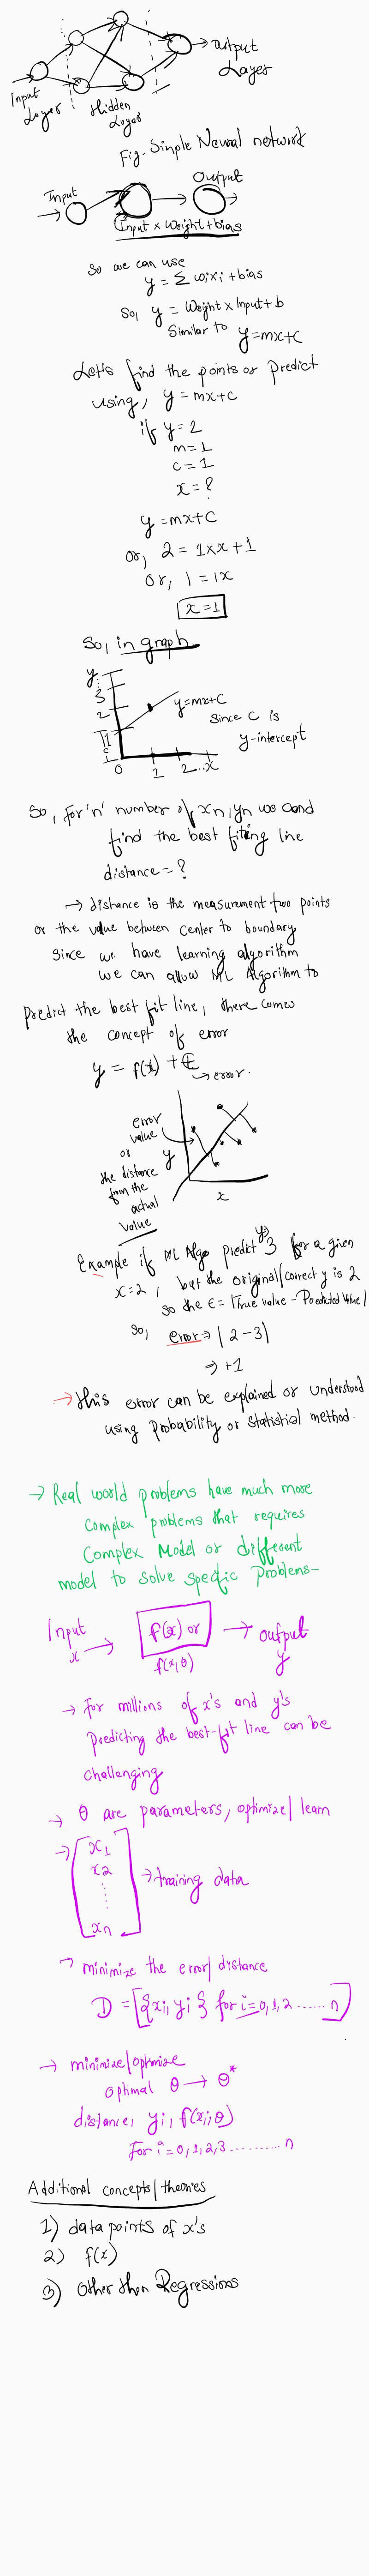 output
Layer
Input
Layer
Hidden
Layer
Fig- Simple Neural network
Input
Output
Input × Weight + bias
So we can use
y = Σ wixi + bias
So, y = Weight × Input + b
Similar to y = mx + c
Let's find the points or predict
using, y = mx + c
if y = 2
m = 1
c = 1
x = ?
y = mx + c
or, 2 = 1×x + 1
or, 1 = 1x
x = 1
So, in graph
y
3
2
1
c
0 1 2 ..x
y = mx + c
Since c is
y-intercept
So, for 'n' number of xn, yn we
find the best fitting line
distance = ?
→ distance is the measurement two points
or the value between center to boundary
Since we have learning algorithm
we can allow ML Algorithm to
predict the best fit line, there comes
the concept of error
y = f(x) + ∈
→ error.
error
value
or
the distance
from the
actual
value
y
x
Example if ML Algo predict y 3 for a given
x = 2, but the original/correct y is 2
so the ∈ = |True value - Predicted Value|
So, error ⇒ |2 - 3|
⇒ +1
→ this error can be explained or understood
using probability or statistial method.
→ Real world problems have much more
complex problems that requires
Complex Model or different
model to solve specific problems-
Input
x →
f(x) or
f(x,θ)
→ output
y
→ For millions of x's and y's
predicting the best-fit line can be
challenging
→ θ are parameters, optimize/learn
→ [x1
x2
⋮
xn]
→ training data
→ minimize the error/distance
D = [{xi, yi} for i = 0, 1, 2 ...... n]
→ minimize/optimize
optimal θ → θ*
distance, yi, f(xi, θ)
For i = 0, 1, 2, 3 .......... n
Additional concepts/theories
1) data points of x's
2) f(x)
3) Other than Regressions